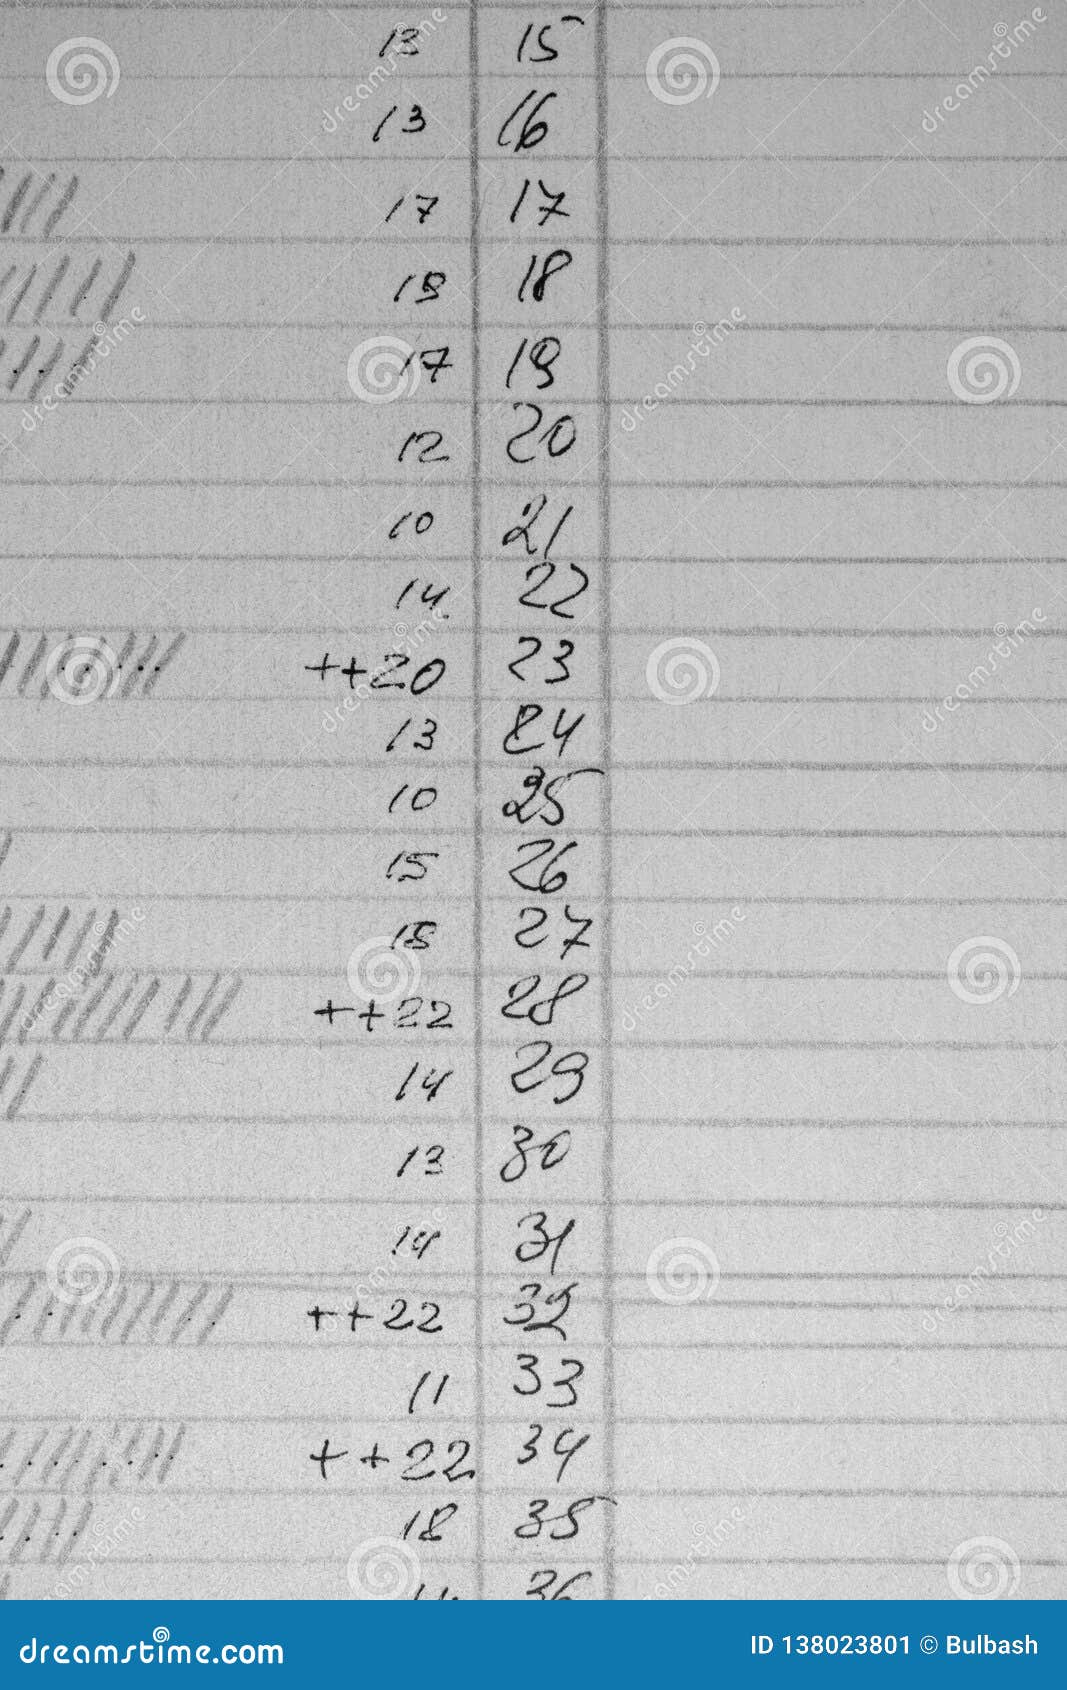 13 15
13 16
17 17
18 18
17 19
12 20
10 21
14 22
++20 23
13 24
10 25
15 26
18 27
++22 28
14 29
13 30
14 31
++22 32
11 33
++22 34
18 35
36
dreamstime.com ID 138023801 © Bulbash